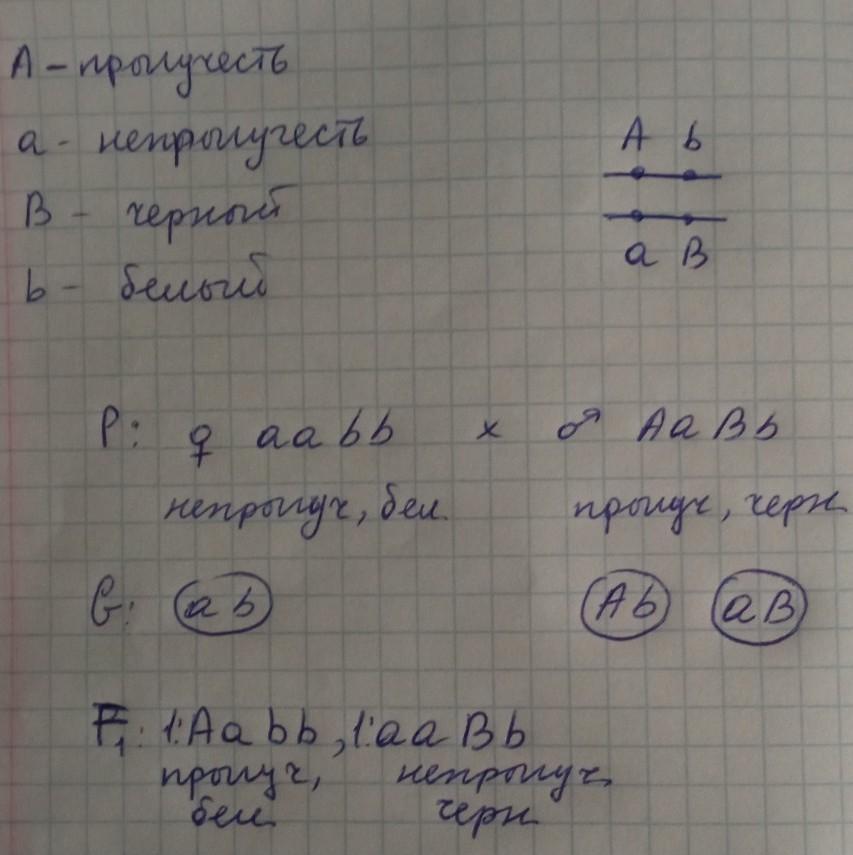 A - прыгучесть
a - непрыгучесть
B - черный
b - белый
A b
a B
P: ♀ aabb × ♂ AaBb
непрыгуч, бел. прыгуч, черн
G: ab Ab aB
F1: 1:Aabb, 1:aaBb
прыгуч, непрыгуч,
бел. черн